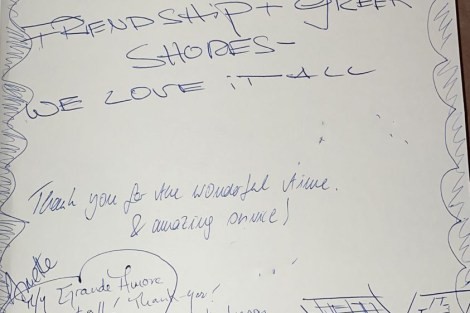 FRIENDSHIP + GREEK
SHORES-
WE LOVE IT ALL
Thank you for the wonderful time.
& amazing service!
Anette
M/Y Grande Amore
Thank you!